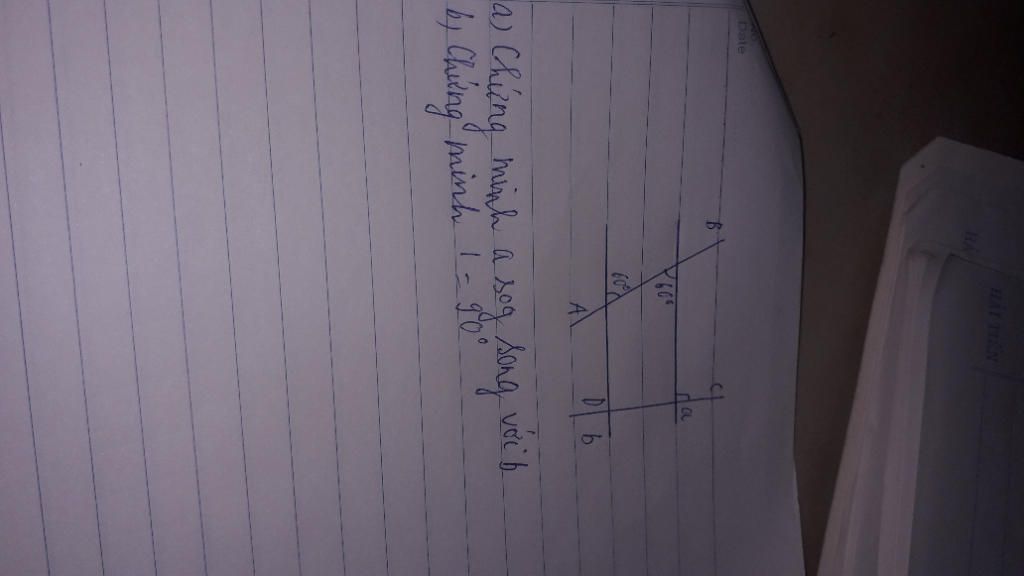 Date
B
C
60°
a
60°
A
D
b
a) Chứng minh a sog song với b
b, Chứng minh 1 = 90°